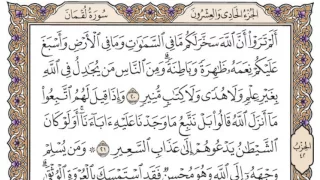 سورة لقمان
الجزء الحادي والعشرون
أَلَمْ تَرَوْا۟ أَنَّ ٱللَّهَ سَخَّرَ لَكُم مَّا فِى ٱلسَّمَٰوَٰتِ وَمَا فِى ٱلْأَرْضِ وَأَسْبَغَ
عَلَيْكُمْ نِعَمَهُۥ ظَٰهِرَةً وَبَاطِنَةً ۗ وَمِنَ ٱلنَّاسِ مَن يُجَٰدِلُ فِى ٱللَّهِ
بِغَيْرِ عِلْمٍ وَلَا هُدًى وَلَا كِتَٰبٍ مُّنِيرٍ ٢٠ وَإِذَا قِيلَ لَهُمُ ٱتَّبِعُوا۟
مَآ أَنزَلَ ٱللَّهُ قَالُوا۟ بَلْ نَتَّبِعُ مَا وَجَدْنَا عَلَيْهِ ءَابَآءَنَآ ۚ أَوَلَوْ كَانَ
ٱلشَّيْطَٰنُ يَدْعُوهُمْ إِلَىٰ عَذَابِ ٱلسَّعِيرِ ٢١ ۞ وَمَن يُسْلِمْ
وَجْهَهُۥٓ إِلَى ٱللَّهِ وَهُوَ مُحْسِنٌ فَقَدِ ٱسْتَمْسَكَ بِٱلْعُرْوَةِ ٱلْوُثْقَىٰ ۗ
الحزب
٤٢